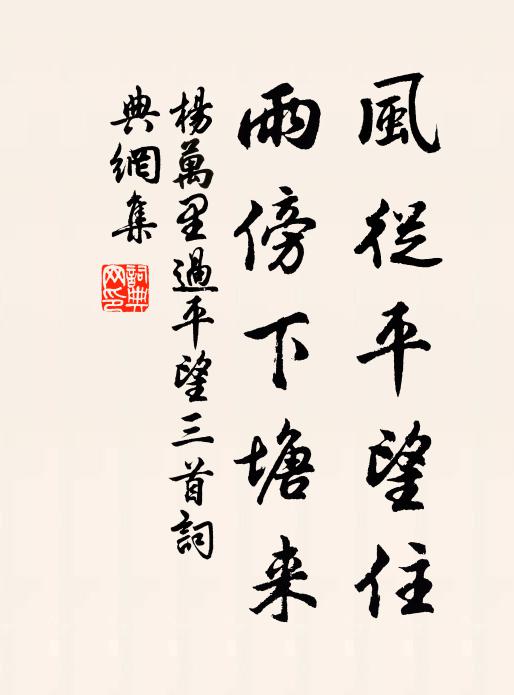 風從平望住
雨傍下塘来
楊萬里過平望三首詞
典網集
詞典
网印